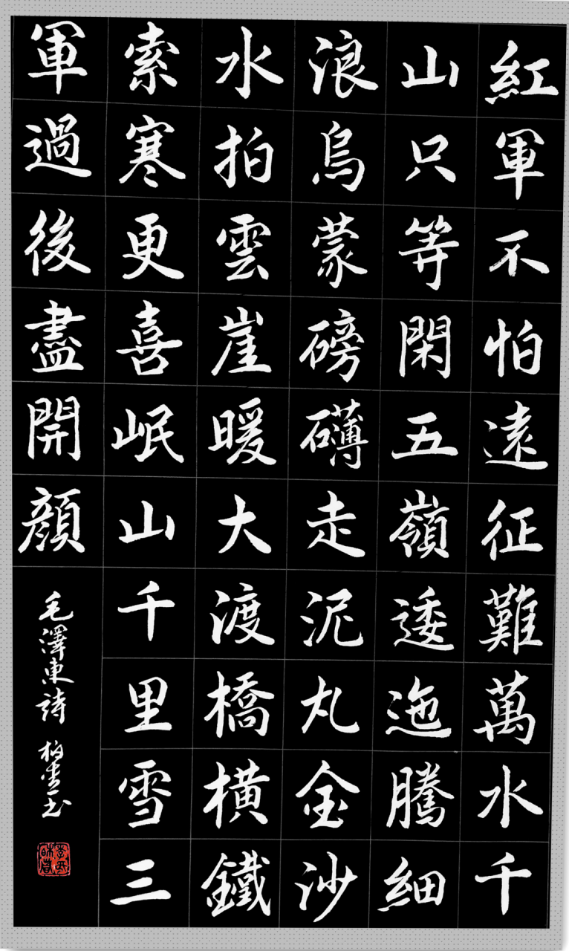 紅軍不怕遠征難萬水千
山只等閑五嶺逶迤騰細
浪烏蒙磅礴走泥丸金沙
水拍雲崖暖大渡橋橫鐵
索寒更喜岷山千里雪三
軍過後盡開顏
毛澤東詩